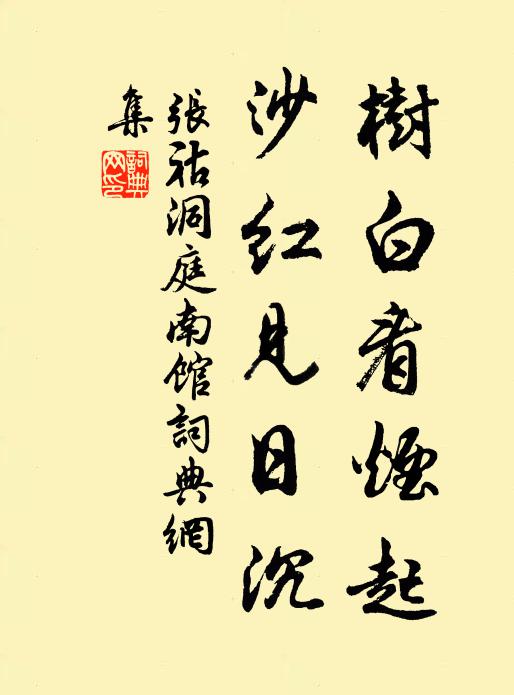 樹白看煙起
沙紅見日沉
張祜洞庭南館詞典網
集
詞典
網印